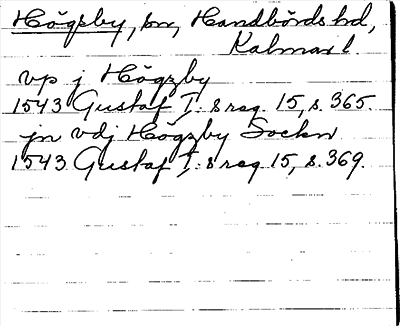 Högsby, sn, Handbörds hd,
Kalmar l.
vp j Högzby
1543 Gustaf I:s reg. 15, s. 365.
jn vdj Högzby Sockn
1543 Gustaf I:s reg. 15, s. 369.